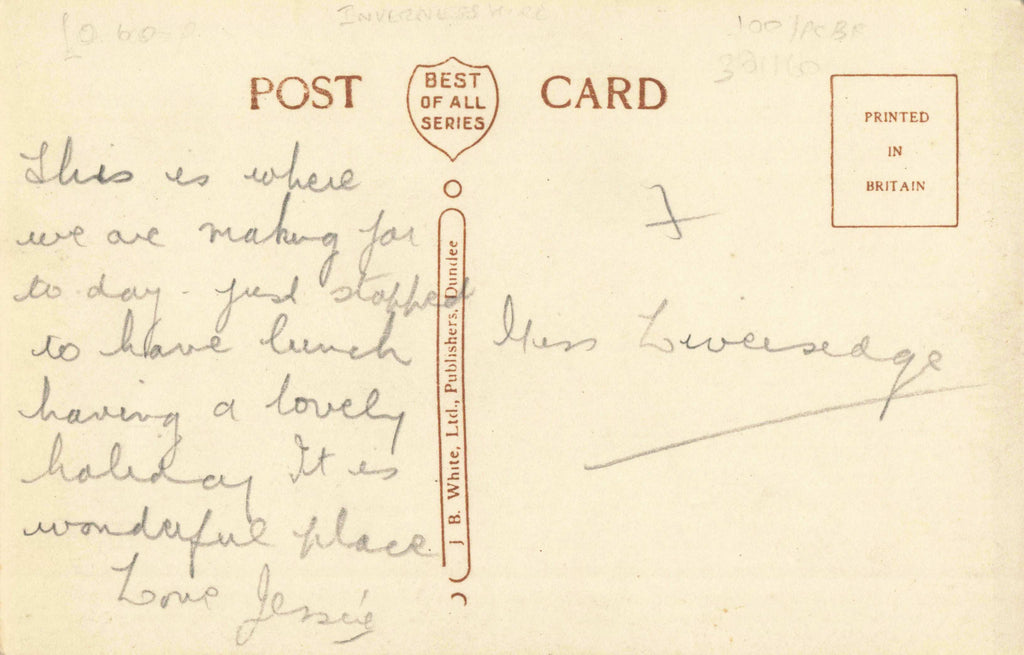 INVERNESSHIRE
POST CARD
BEST
OF ALL
SERIES
PRINTED
IN
BRITAIN
This is where
we are making for
to day - just stopped
to have lunch
having a lovely
holiday It is
wonderful place
Love Jessie
J. B. White, Ltd., Publishers, Dundee
Miss Liversedge